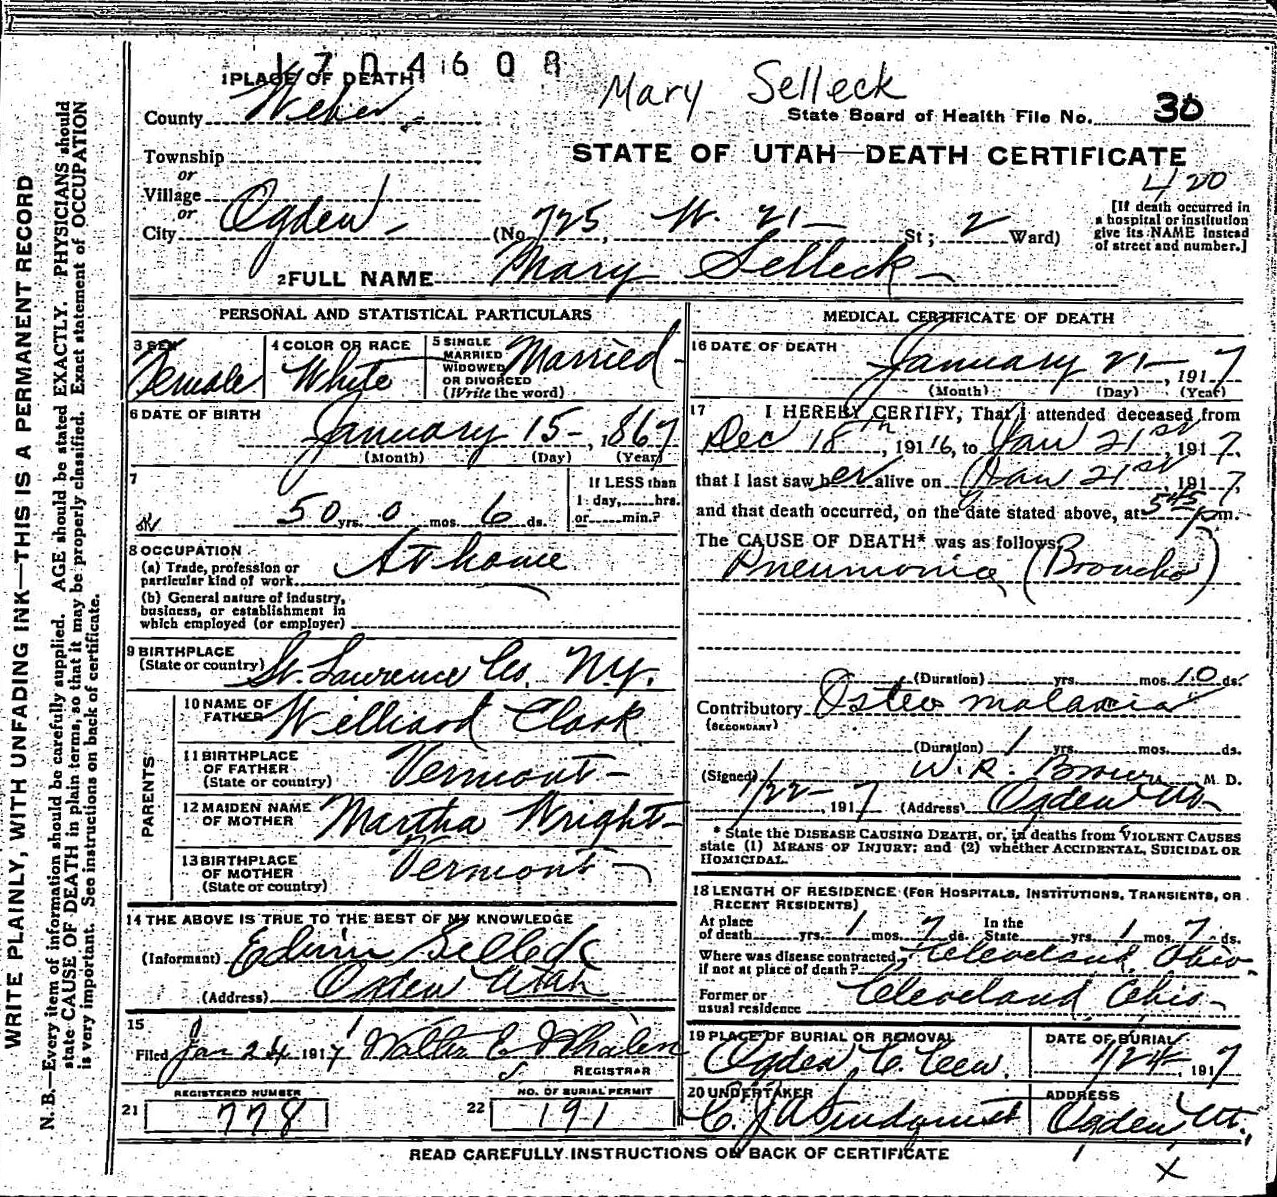 1704608
Mary Selleck
1 PLACE OF DEATH
County Weber
State Board of Health File No. 30
Township
or
Village
or
City Ogden
STATE OF UTAH—DEATH CERTIFICATE
420
[If death occurred in
a hospital or institution
give its NAME instead
of street and number.]
(No. 725, W. 21 St; 2 Ward)
2 FULL NAME Mary Selleck
PERSONAL AND STATISTICAL PARTICULARS
3 SEX
Female
4 COLOR OR RACE
White
5 SINGLE
MARRIED
WIDOWED
OR DIVORCED
(Write the word)
Married
6 DATE OF BIRTH
January 15 , 1867
(Month) (Day) (Year)
7
50 yrs. 0 mos. 6 ds.
If LESS than
1 day,......hrs.
or......min.?
8 OCCUPATION
(a) Trade, profession or
particular kind of work
At home
(b) General nature of industry,
business, or establishment in
which employed (or employer)
9 BIRTHPLACE
(State or country)
St. Lawrence Co. N.Y.
PARENTS
10 NAME OF
FATHER
Williard Clark
11 BIRTHPLACE
OF FATHER
(State or country)
Vermont
12 MAIDEN NAME
OF MOTHER
Martha Wright
13 BIRTHPLACE
OF MOTHER
(State or country)
Vermont
14 THE ABOVE IS TRUE TO THE BEST OF MY KNOWLEDGE
(Informant) Edwin Selleck
(Address) Ogden Utah
15
Filed Jan 24 1917 Walter E. Whalen
REGISTRAR
REGISTERED NUMBER
21 778
NO. OF BURIAL PERMIT
22 191
MEDICAL CERTIFICATE OF DEATH
16 DATE OF DEATH
January 21 , 1917
(Month) (Day) (Year)
17 I HEREBY CERTIFY, That I attended deceased from
Dec 18th , 19116, to Jan 21st , 1917,
that I last saw her alive on Jan 21st , 1917,
and that death occurred, on the date stated above, at 545 pm.
The CAUSE OF DEATH* was as follows:
Pneumonia (Broncho)
(Duration) yrs. mos. 10 ds.
Contributory Osteo malacia
(SECONDARY)
(Duration) 1 yrs. mos. ds.
(Signed) W. R. Brown M. D.
1/22 , 1917 (Address) Ogden Ut
* State the DISEASE CAUSING DEATH, or, in deaths from VIOLENT CAUSES
state (1) MEANS OF INJURY; and (2) whether ACCIDENTAL, SUICIDAL OR
HOMICIDAL.
18 LENGTH OF RESIDENCE (FOR HOSPITALS, INSTITUTIONS, TRANSIENTS, OR
RECENT RESIDENTS)
At place
of death yrs. 1 mos. 7 ds.
In the
State yrs. 1 mos. 7 ds.
Where was disease contracted,
if not at place of death?
Cleveland, Ohio.
Former or
usual residence
Cleveland, Ohio
19 PLACE OF BURIAL OR REMOVAL
Ogden C. Cem.
DATE OF BURIAL
1/24 , 1917
20 UNDERTAKER
C. J. A. Lindquist
ADDRESS
Ogden, Ut.
READ CAREFULLY INSTRUCTIONS ON BACK OF CERTIFICATE
X
WRITE PLAINLY, WITH UNFADING INK—THIS IS A PERMANENT RECORD
N. B.—Every item of information should be carefully supplied. AGE should be stated EXACTLY. PHYSICIANS should
state CAUSE OF DEATH in plain terms, so that it may be properly classified. Exact statement of OCCUPATION
is very important. See instructions on back of certificate.